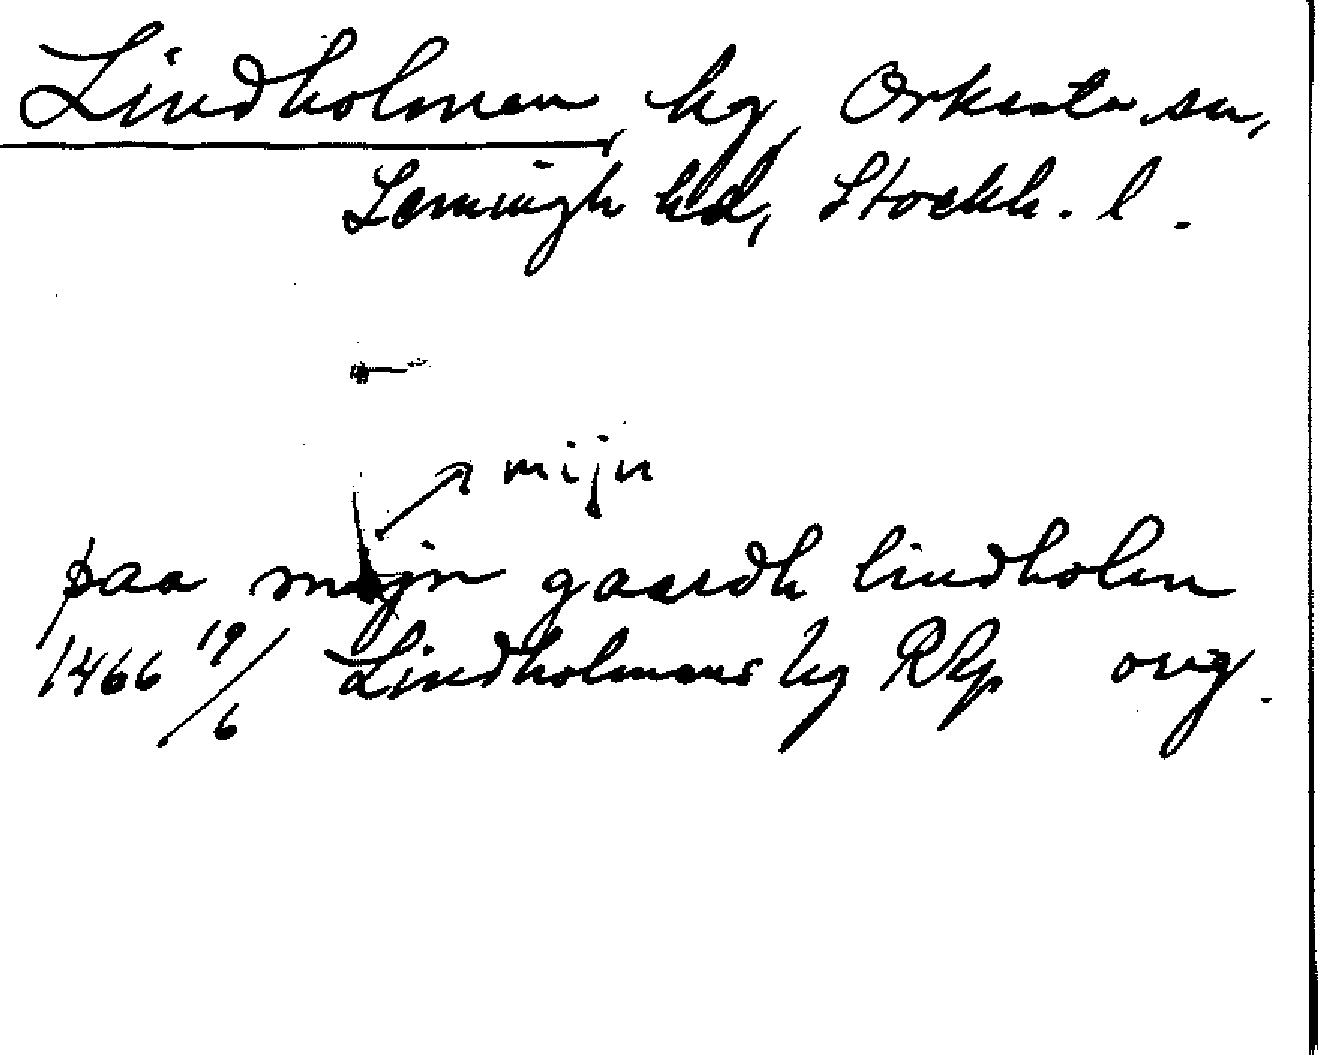 Lindholmen, hg, Orkesta sn,
Seminghundra hd, Stockh. l.
mijn
paa mijn gaardh lindholm
1466 19/6 Lindholmens hg RAp orig.